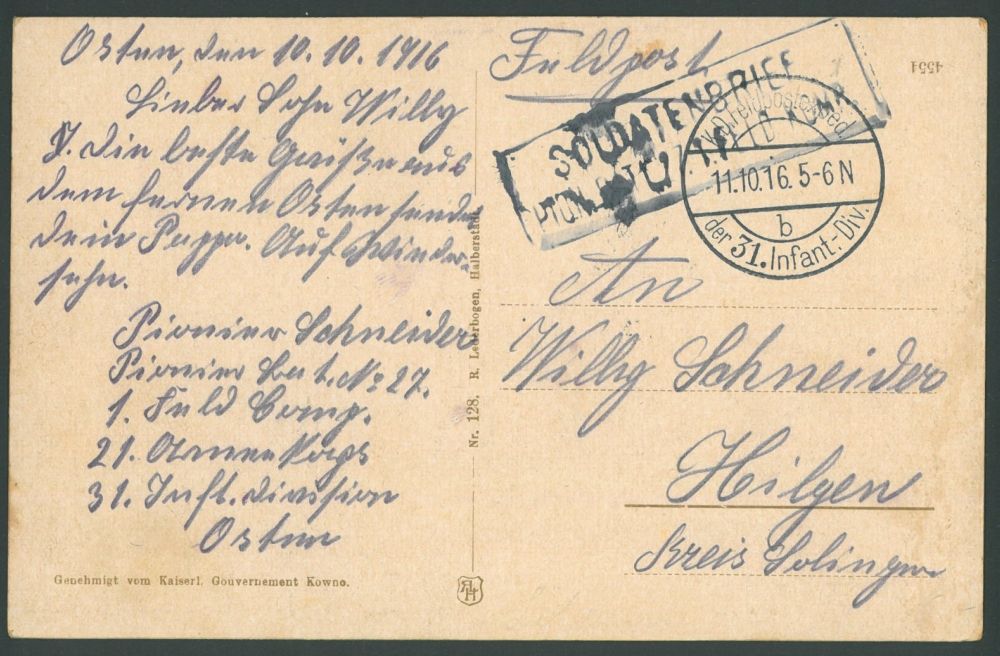 Osten, den 10. 10. 1916
Lieber Sohn Willy
die beste Grüße aus
dem fernen Osten sendet
dein Pappa. Auf Wieder-
sehn.
Pionier Schneider
Pionier Bat. No 27.
1. Feld Comp.
21. Armee Kops
31. Inft. Division
Osten
Genehmigt vom Kaiserl. Gouvernement Kowno.
Nr. 128. R. Lederbogen, Halberstadt.
RLH
Feldpost
4554
SOLDATENBRIEF
K.D. Feldpostexped.
11.10.16. 5-6 N
b
der 31. Infant.-Div.
An
Willy Schneider
Hilgen
Kreis Solingen